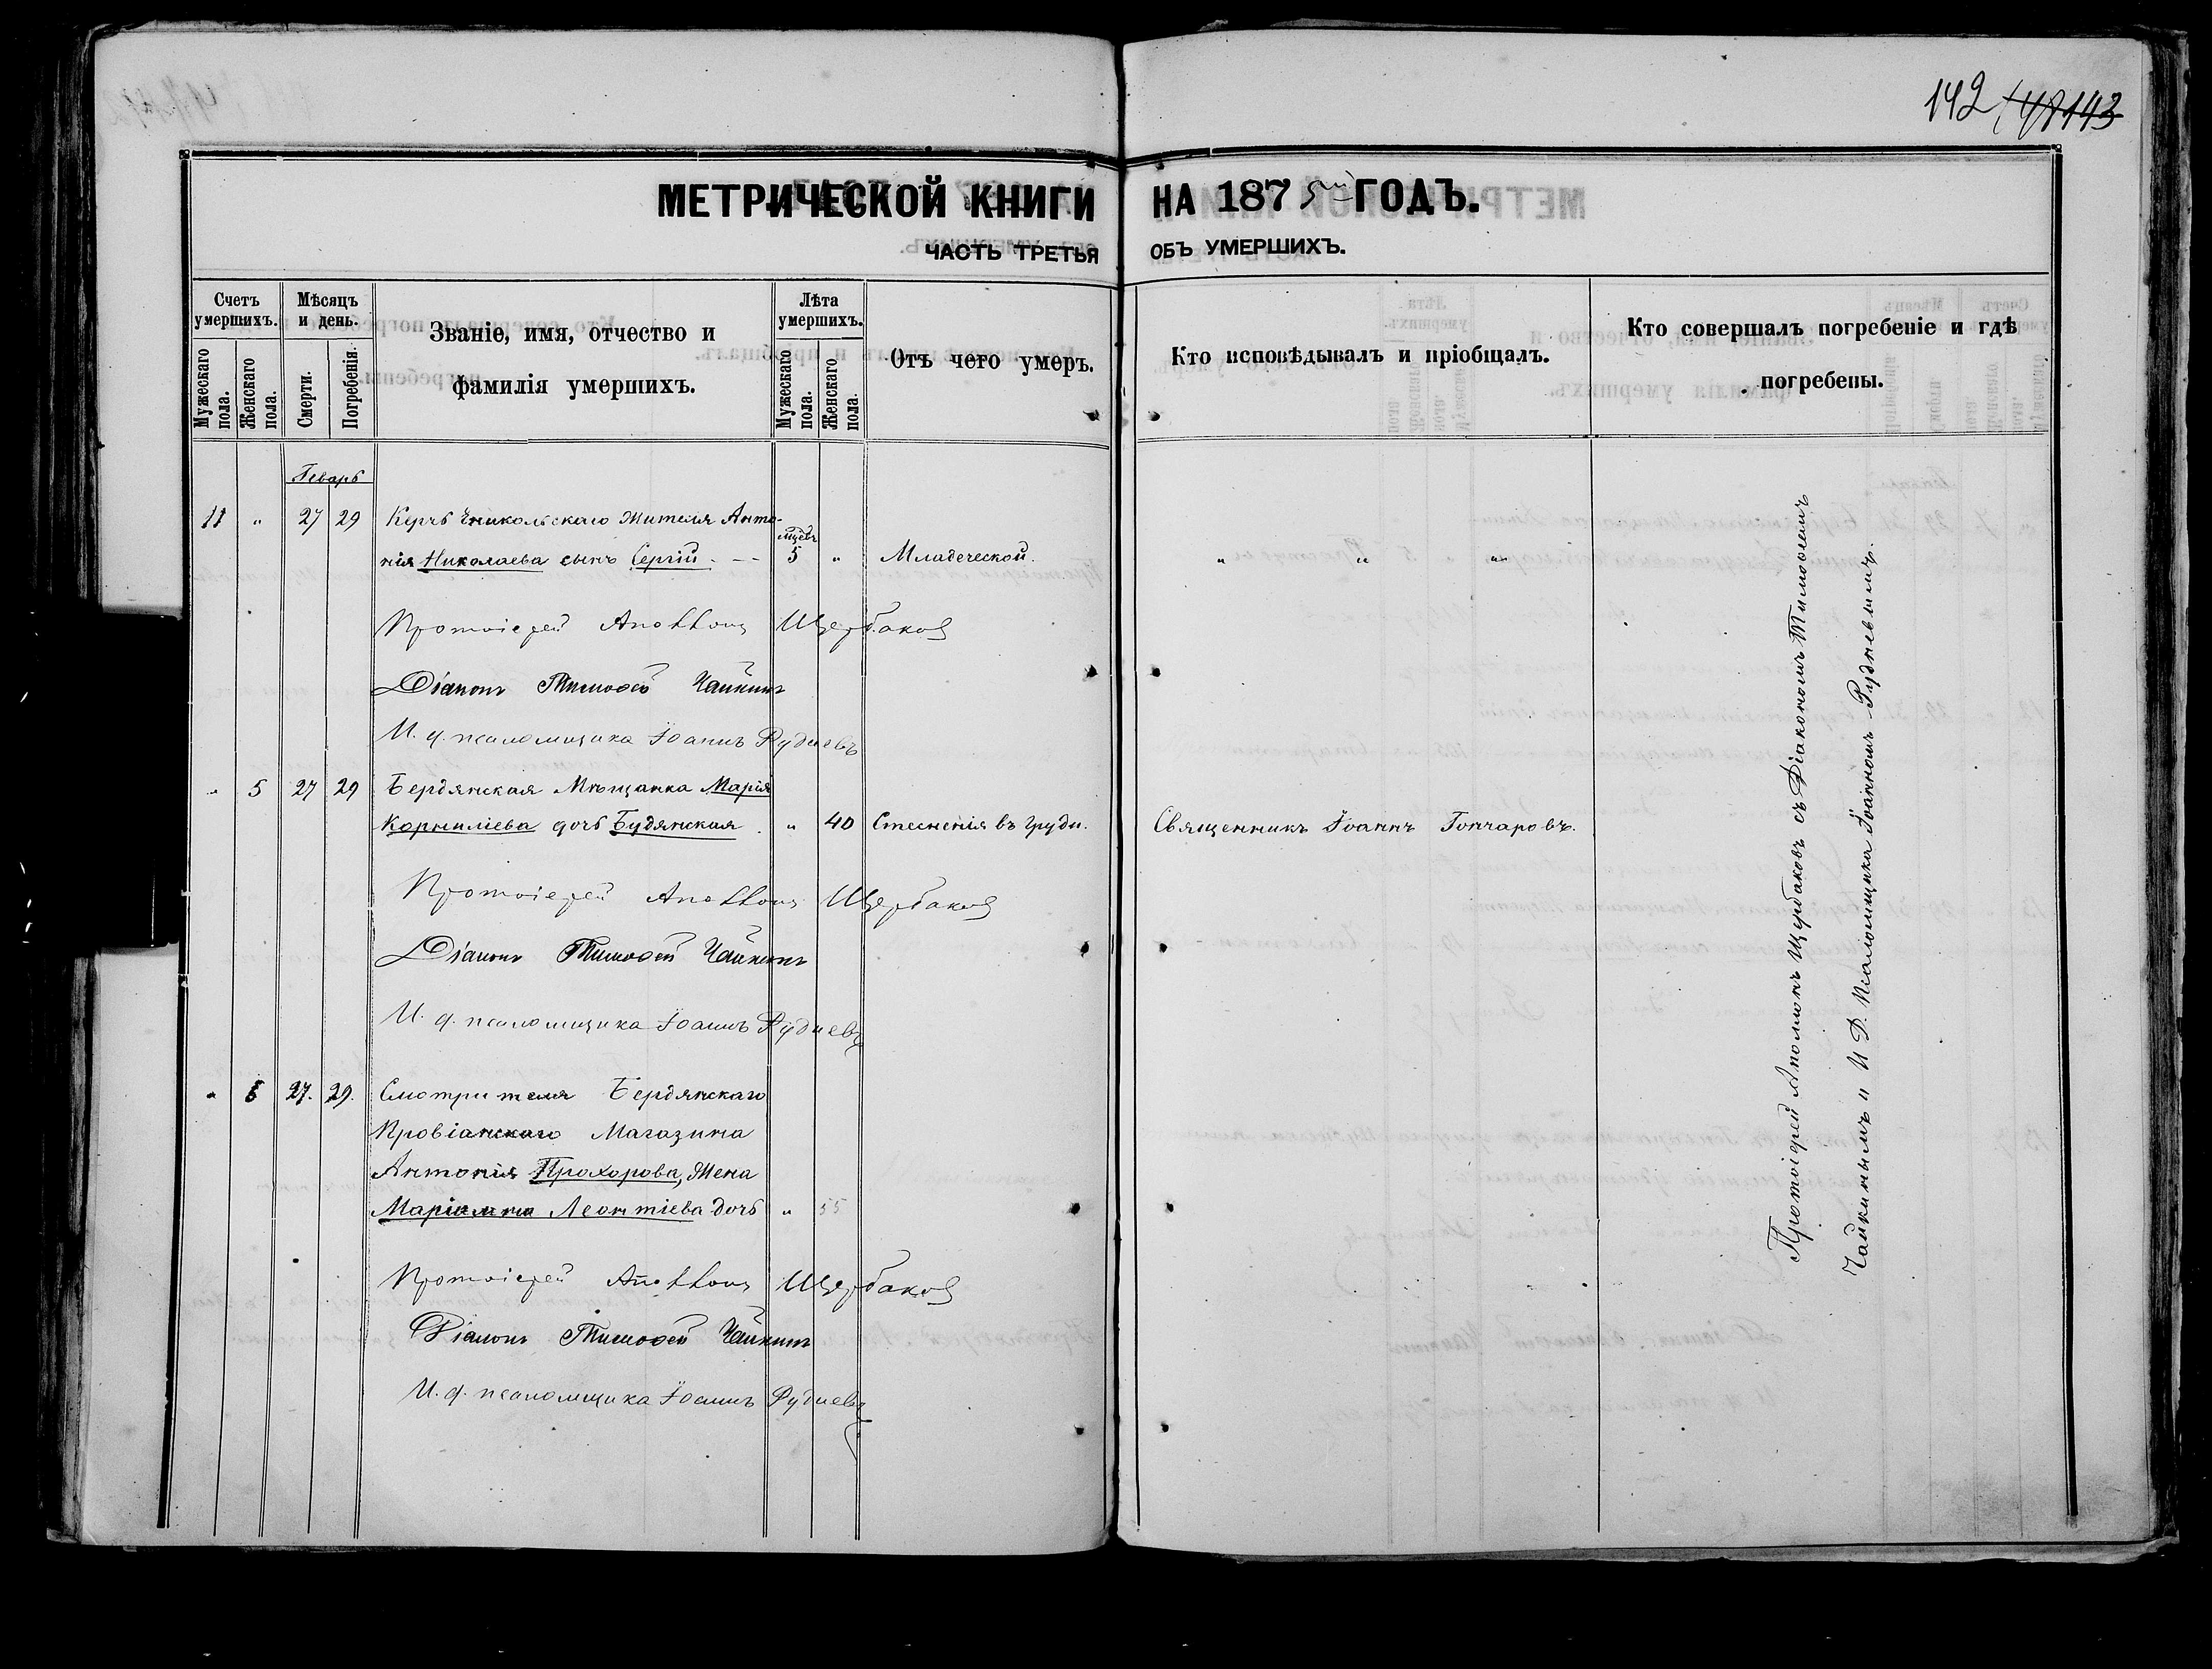 142 148 143
МЕТРИЧЕСКОЙ КНИГИ НА 1875й ГОДЪ.
ЧАСТЬ ТРЕТЬЯ ОБЪ УМЕРШИХЪ.
Счетъ умершихъ.
Мужескаго пола.
Женскаго пола.
Мѣсяцъ и день.
Смерти.
Погребенія.
Званіе, имя, отчество и
фамилія умершихъ.
Лѣта умершихъ.
Мужескаго пола.
Женскаго пола.
Отъ чего умеръ.
Кто исповѣдывалъ и пріобщалъ.
Кто совершалъ погребеніе и гдѣ
погребены.
Генварь
11 " 27 29 Керчь Еникольскаго жителя Анто-
нія Николаева сынъ Сергій. - - мцевъ 5 " Младеческой. " " "
Протоіерей Аполлонъ Щербаковъ
Діаконъ Тимофей Чайкинъ
И. д. псаломщика Іоаннъ Рудневъ
" 5 27 29 Бердянская Мѣщанка Марія
Корниліева дочь Будянская. " 40 Стесненія въ груди. Священникъ Іоаннъ Гончаровъ.
Протоіерей Аполлонъ Щербаковъ
Діаконъ Тимофей Чайкинъ
И. д. псаломщика Іоаннъ Рудневъ
" 6 27. 29. Смотрителя Бердянскаго
Провіанскаго Магазина
Антонія Прохорова, жена
Маріамна Леонтіева дочь " 55
Протоіерей Аполлонъ Щербаковъ
Діаконъ Тимофей Чайкинъ
И. д. псаломщика Іоаннъ Рудневъ
Протоіерей Аполлонъ Щербаковъ съ Діакономъ Тимофеемъ
Чайкинымъ и И. Д. Псаломщика Іоанномъ Рудневымъ.